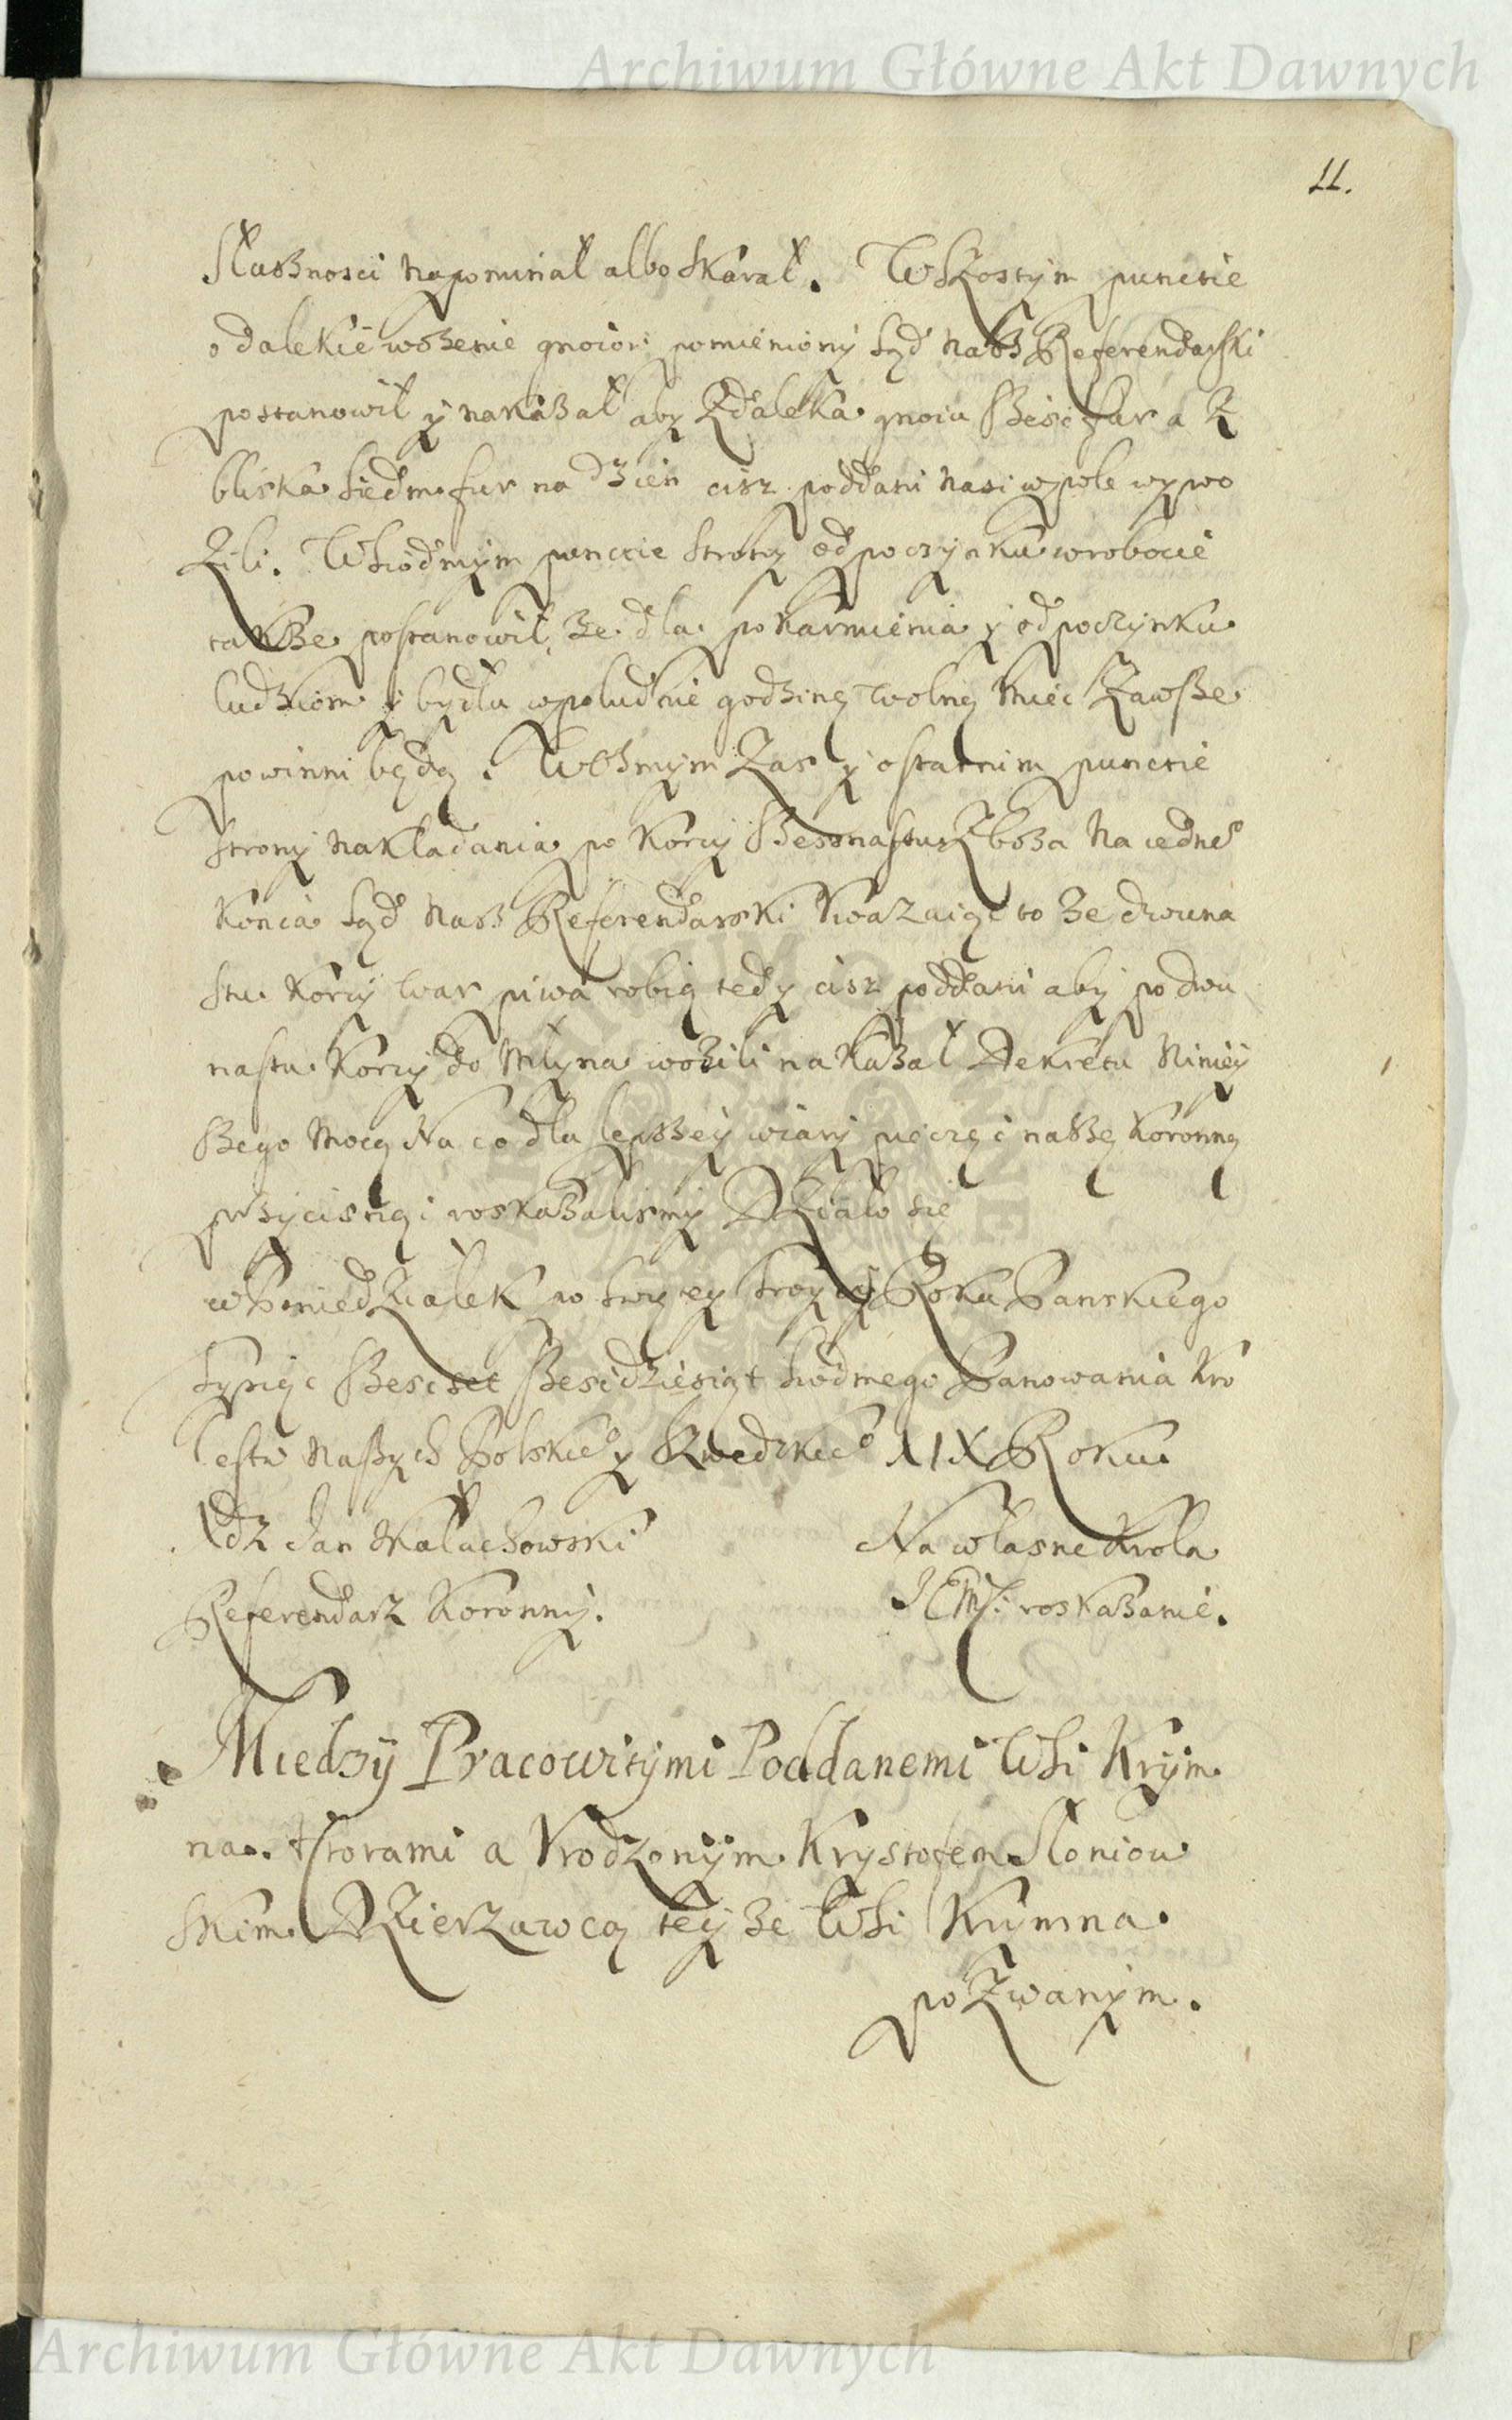 Archiwum Główne Akt Dawnych
11.
Słusznosci napominał albo skarał. W Szostym puncie
o dalekie wozenie gnoiow pomieniony Sąd nasz Referendarski
postanowił y nakazał aby z daleka gnoiu szesc fur a z
bliska siedm fur na dzien cisz poddani nasi w pole wywo
zili. W Siodmym puncie strony odpoczynku w robocie
takze postanowił, ze dla pokarmienia y odpoczynku
ludziom y bydłu w południe godzinę wolną miec zawsze
powinni będą. W Osmym zas y ostatnim puncie
strony nakładania po korcy szesnastu zboza na iedne
konia Sąd nasz Referendarski uwazaiąc to ze z dwuna
stu korcy war piwa robią tedy cisz poddani aby po dwu
nastu korcy do młyna wozili nakazał Dekretu niniey
szego mocą Na co dla lepszey wiary pieczęc naszę koronną
przycisnąc roskazalismy Działo się
w Poniedziałek po Swiętey Troycy Roku Panskiego
Tysiąc szescset szescdziesiąt siodmego Panowania Kro
lestw naszych Polskieo y Szwedzkieo XIX Roku
Xdz Jan Małachowski
Referendarz Koronny.
Na własne Krola
JEMsci roskazanie.
Miedzy Pracowitymi Poddanemi Wsi Krym
na. Actorami a Urodzonym Krysztofem Słoniow
skim Dzierzawcą teyze Wsi Krymna
pozwanym.
Archiwum Główne Akt Dawnych